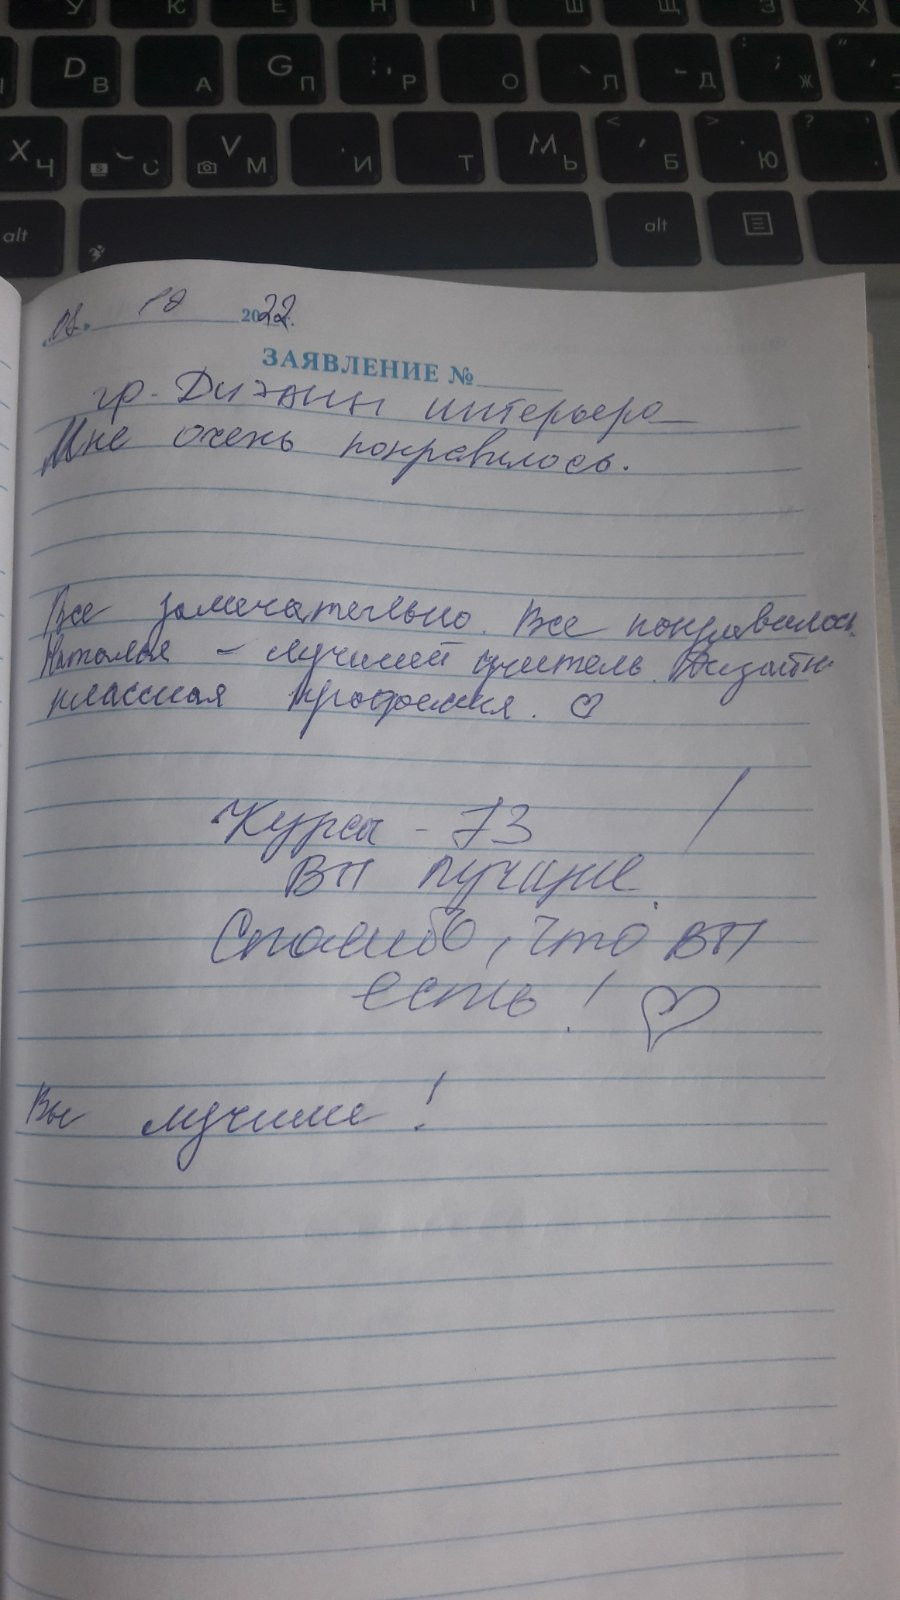 У К Е Н Г Ш Щ З Х
D В А G П Р О Л Д Ж
X Ч С V М И Т М Ь < Б > Ю ? .
alt alt
08. 10 2022.
ЗАЯВЛЕНИЕ №
гр. Дизайн интерьера
Мне очень понравилось.
Все замечательно. Все понравилось.
Наталья – лучший учитель. Дизайн-
классная профессия. ♡
Курсы - 73 !
ВП лучшие.
Спасибо, что ВП
есть! ♡
Вы лучшие!